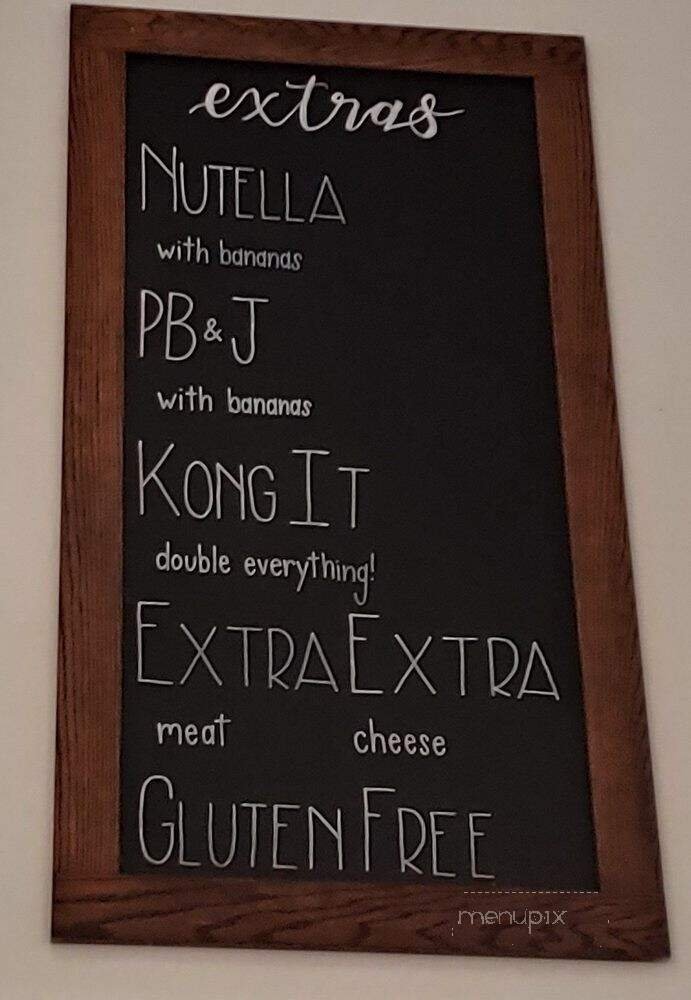 extras
NUTELLA
with bananas
PB & J
with bananas
KONG IT
double everything!
EXTRA EXTRA
meat cheese
GLUTEN FREE
menupix